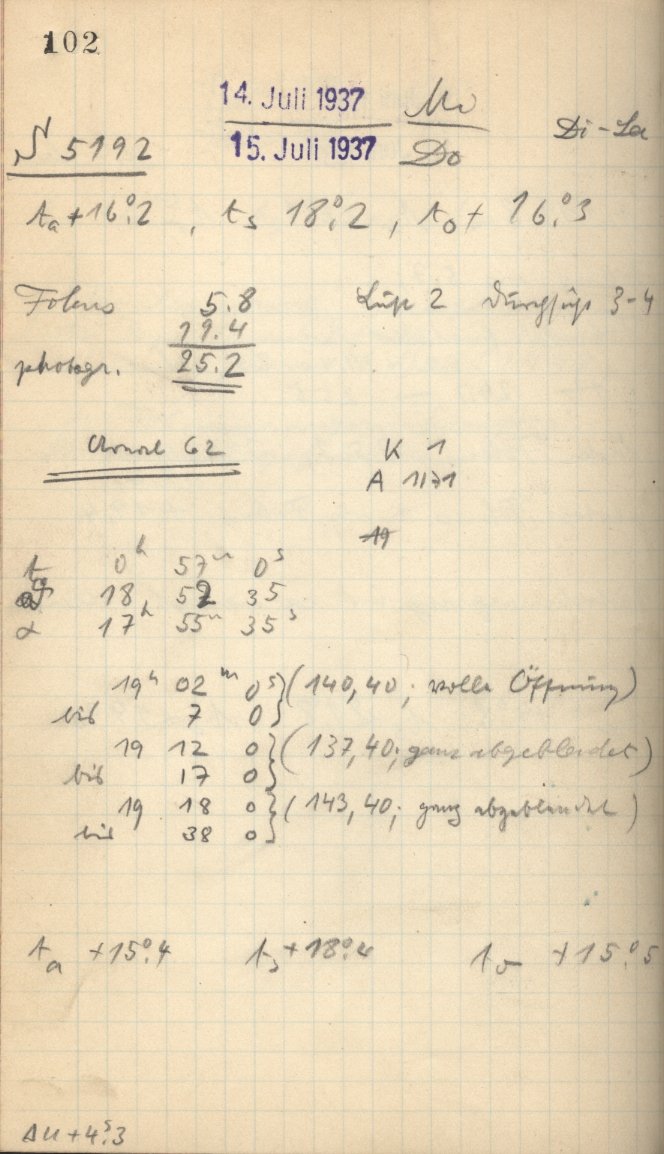 102
14. Juli 1937 Mi
15. Juli 1937 Do
Di-La
S 5192
ta + 16°.2 , ts 18°.2 , to + 16°.3
Fokus 5.8 Luft 2 Durchsicht 3-4
19.4
photogr. 25.2
62 K 1
A 1171
19
t 0h 57m 0s
18 52 35
α 17h 55m 35s
19h 02m 0s } (140,40; volle Öffnung)
bis 7 0
19 12 0 } (137,40; ganz abgeblendet)
bis 17 0
19 18 0 } (143,40; ganz abgeblendet)
bis 38 0
ta +15°.4 ts +18°.4 to +15°.5
Δu + 4s.3